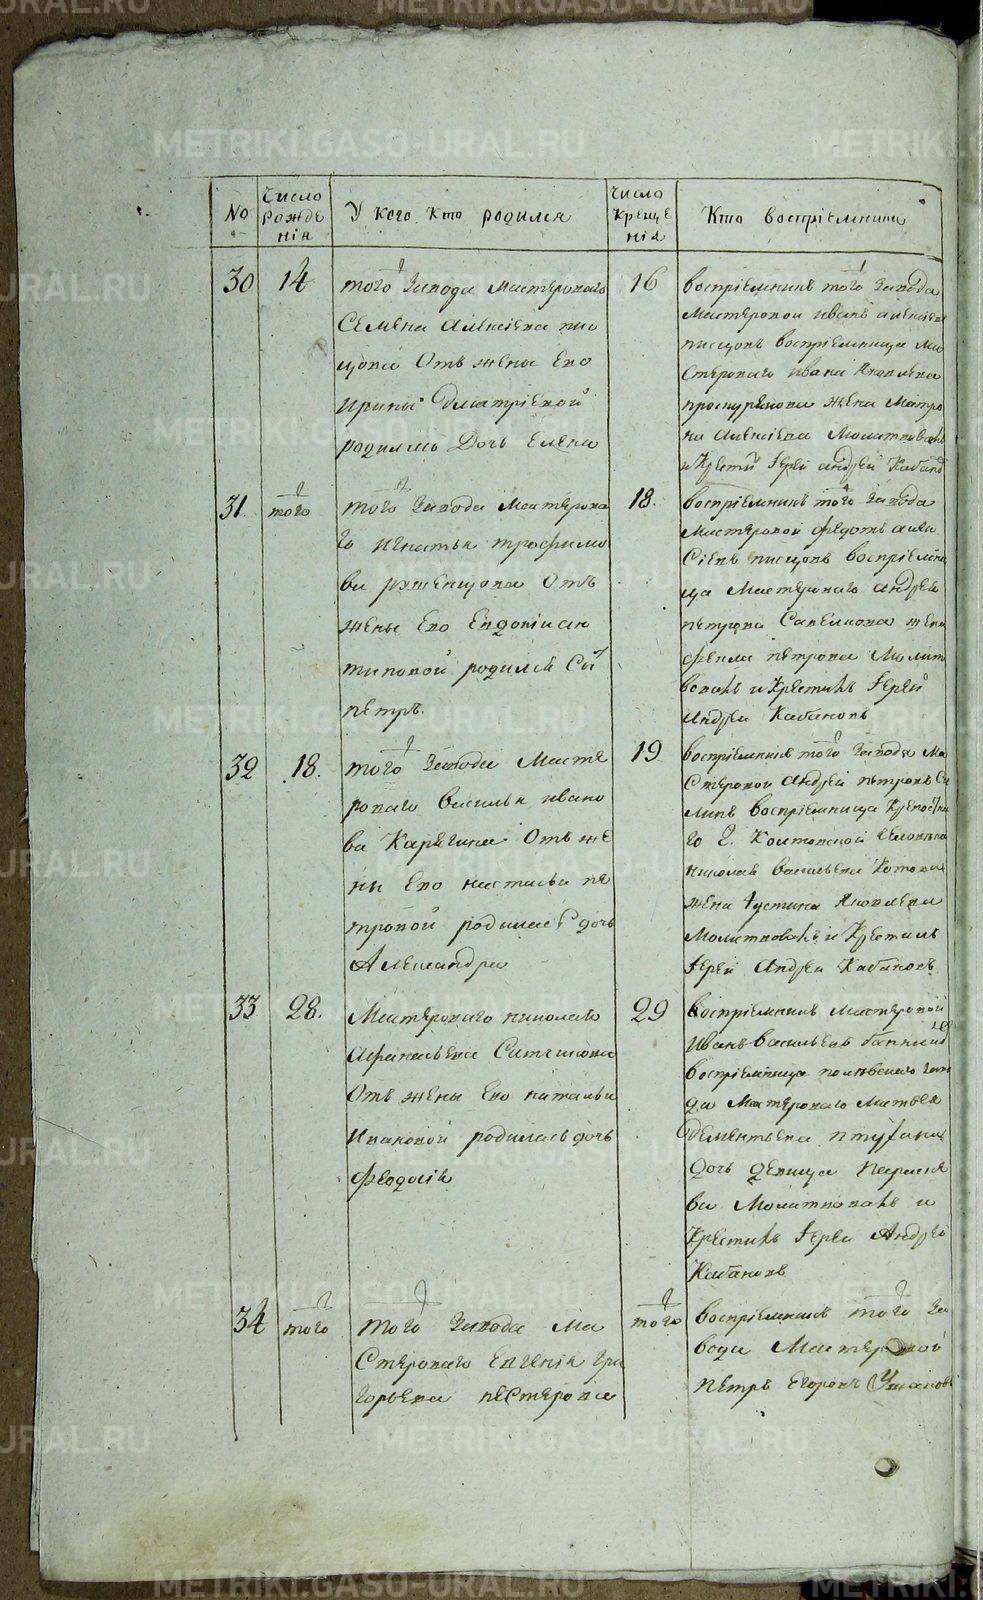 METRIKI.GASO-URAL.RU
No
Число рожде нія
У кого. Кто родился
число креще нія
Кто воспріемники
30
14
того завода Мастероваго
Семена Алексіева пис
цова Отъ жены Его
Ирины Дмитріевой
родилась Дочь Елена
16
воспріемникъ того завода
Мастеровой иванъ алексіевъ
писцовъ воспріемница Ма
стероваго ивана Яковлева
проскурякова жена Матро
на алексіева Молитвовалъ
и Крести Іерей андрей Кабано
31.
того
того завода Мастерова
го Игнатья трофимо
ва Отъ
жены Его Евдокіи ан
типовой родился Сы
петръ.
18.
воспріемникъ того завода
Мастеровой федотъ алек
сіевъ писцовъ воспріемни
ца Мастероваго андрея
петрова Савелкова жена
фекла петрова Молит
вовалъ и Крестилъ Іерей
Андрей Кабановъ
32
18.
того завода Масте
роваго василья ивано
ва Карягина Отъ же
ны Его настасьи пе
тровой родилась дочь
Александра
19
воспріемникъ того завода Ма
стеровой андрей петровъ
воспріемница Крепостна
го Г. человека
николая васильева Котова
жена Іустина Яковлева
Молитвовалъ и Крестилъ
Іерей Андрей Кабановъ
33
28.
Мастероваго николая
Афанасьева
Отъ жены Его натальи
Ивановой родилась дочь
феодосія
29
воспріемникъ мастеровой
Иванъ васильевъ
воспріемница полевскаго заво
да Мастероваго матвея
дементьева птухина
дочь девица параске
ва Молитвовалъ и
Крестилъ Іерей Андрей
Кабановъ
34
того
того завода Ма
стероваго Евгенія Гри
горьева нестерова
того
воспріемникъ того за
вода Мастеровой
петръ Егоровъ Ушаковъ